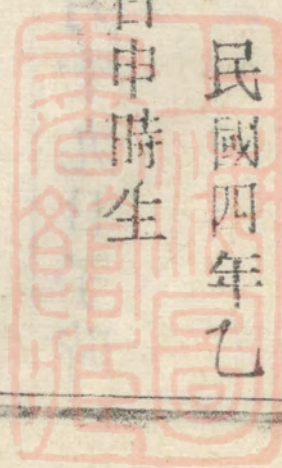 民國四年乙
日申時生